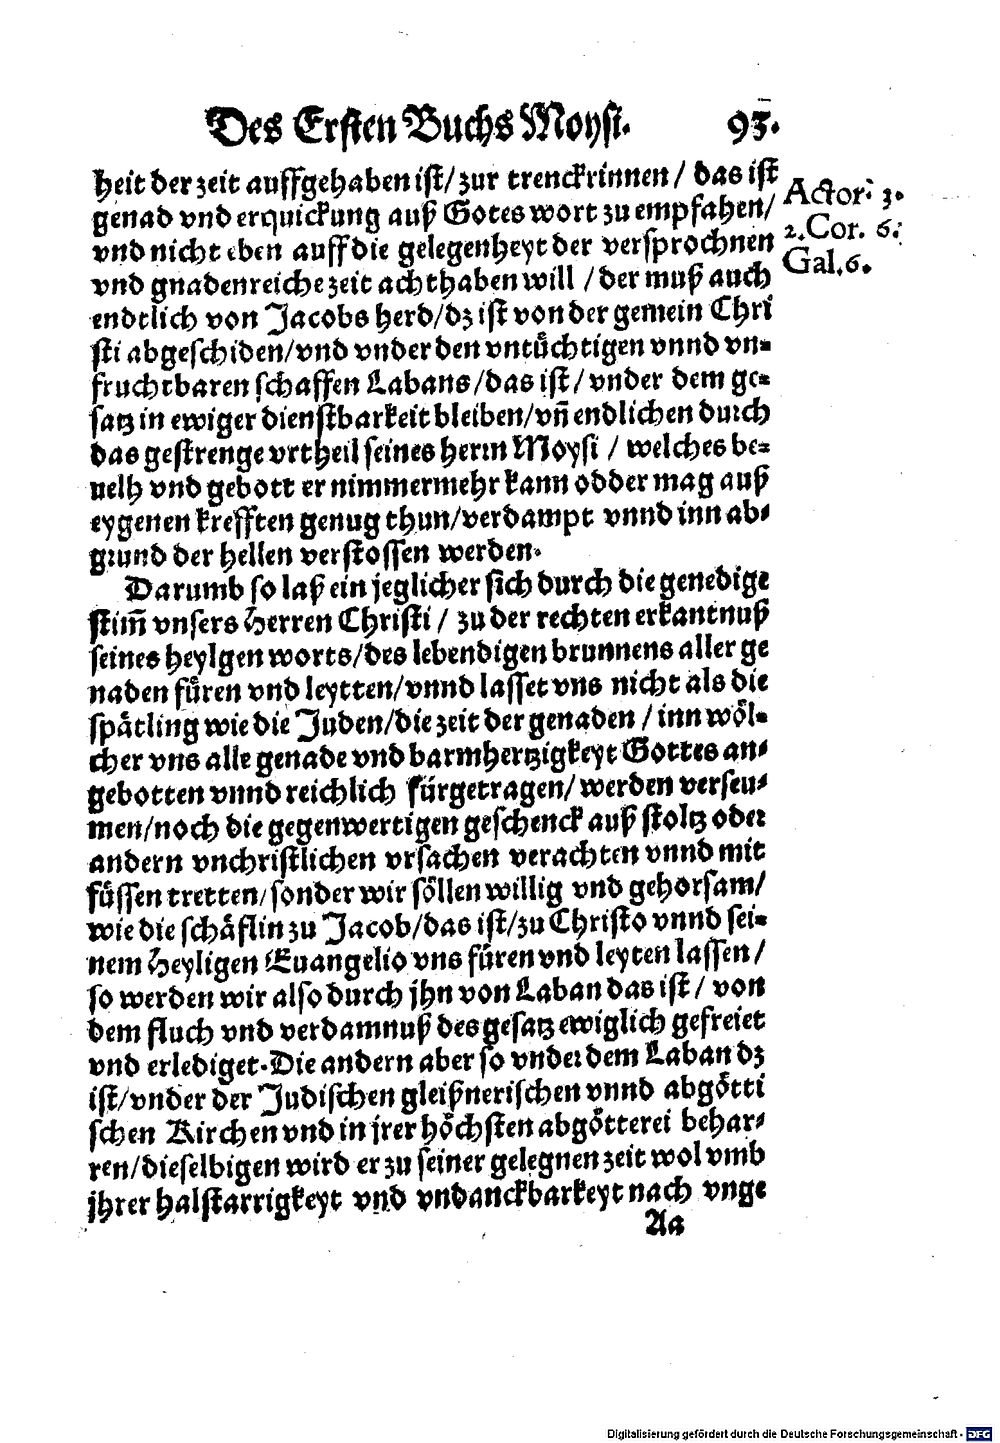 Des Ersten Buchs Moysi. 93.
heit der zeit auffgehaben ist/ zur trenckrinnen / das ist
genad vnd erquickung auß Gotes wort zu empfahen/
vnd nicht eben auff die gelegenheyt der versprochnen
vnd gnadenreiche zeit acht haben will / der muß auch
endtlich von Jacobs herd/ dz ist von der gemein Chri
sti abgeschiden/ vnd vnder den vntüchtigen vnnd vn-
fruchtbaren schaffen Labans/ das ist/ vnder dem ge-
satz in ewiger dienstbarkeit bleiben/ vñ endlichen durch
das gestrenge vrtheil seines herrn Moysi / welches be-
uelh vnd gebott er nimmermehr kann odder mag auß
eygenen krefften genug thun/ verdampt vnnd inn ab-
grund der hellen verstossen werden.
Darumb so laß ein jeglicher sich durch die genedige
stim̃ vnsers Herren Christi / zu der rechten erkantnuß
seines heylgen worts/ des lebendigen brunnens aller ge
naden fůren vnd leytten/ vnnd lasset vns nicht als die
spätling wie die Juden/ die zeit der genaden / inn wöl-
cher vns alle genade vnd barmhertzigkeyt Gottes an-
gebotten vnnd reichlich fürgetragen/ werden verseu-
men/ noch die gegenwertigen geschenck auß stoltz oder
andern vnchristlichen vrsachen verachten vnnd mit
füssen tretten/ sonder wir söllen willig vnd gehorsam/
wie die schäflin zu Jacob/ das ist/ zu Christo vnnd sei-
nem Heyligen Euangelio vns füren vnd leyten lassen/
so werden wir also durch jhn von Laban das ist / von
dem fluch vnd verdamnuß des gesatz ewiglich gefreiet
vnd erlediget. Die andern aber so vnder dem Laban dz
ist/ vnder der Judischen gleißnerischen vnnd abgötti
schen Kirchen vnd in jrer höchsten abgötterei behar-
ren/ dieselbigen wird er zu seiner gelegnen zeit wol vmb
jhrer halstarrigkeyt vnd vndanckbarkeyt nach vnge
Aa
Actor. 3.
2. Cor. 6.
Gal. 6.
Digitalisierung gefördert durch die Deutsche Forschungsgemeinschaft - DFG